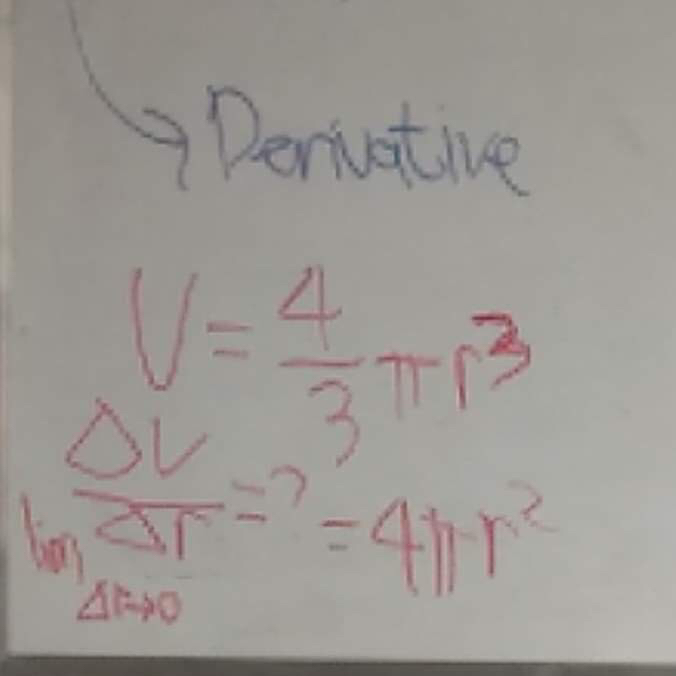 Derivative
V = 4/3 πr³
lim Δr→0 ΔV/Δr = ? = 4πr²